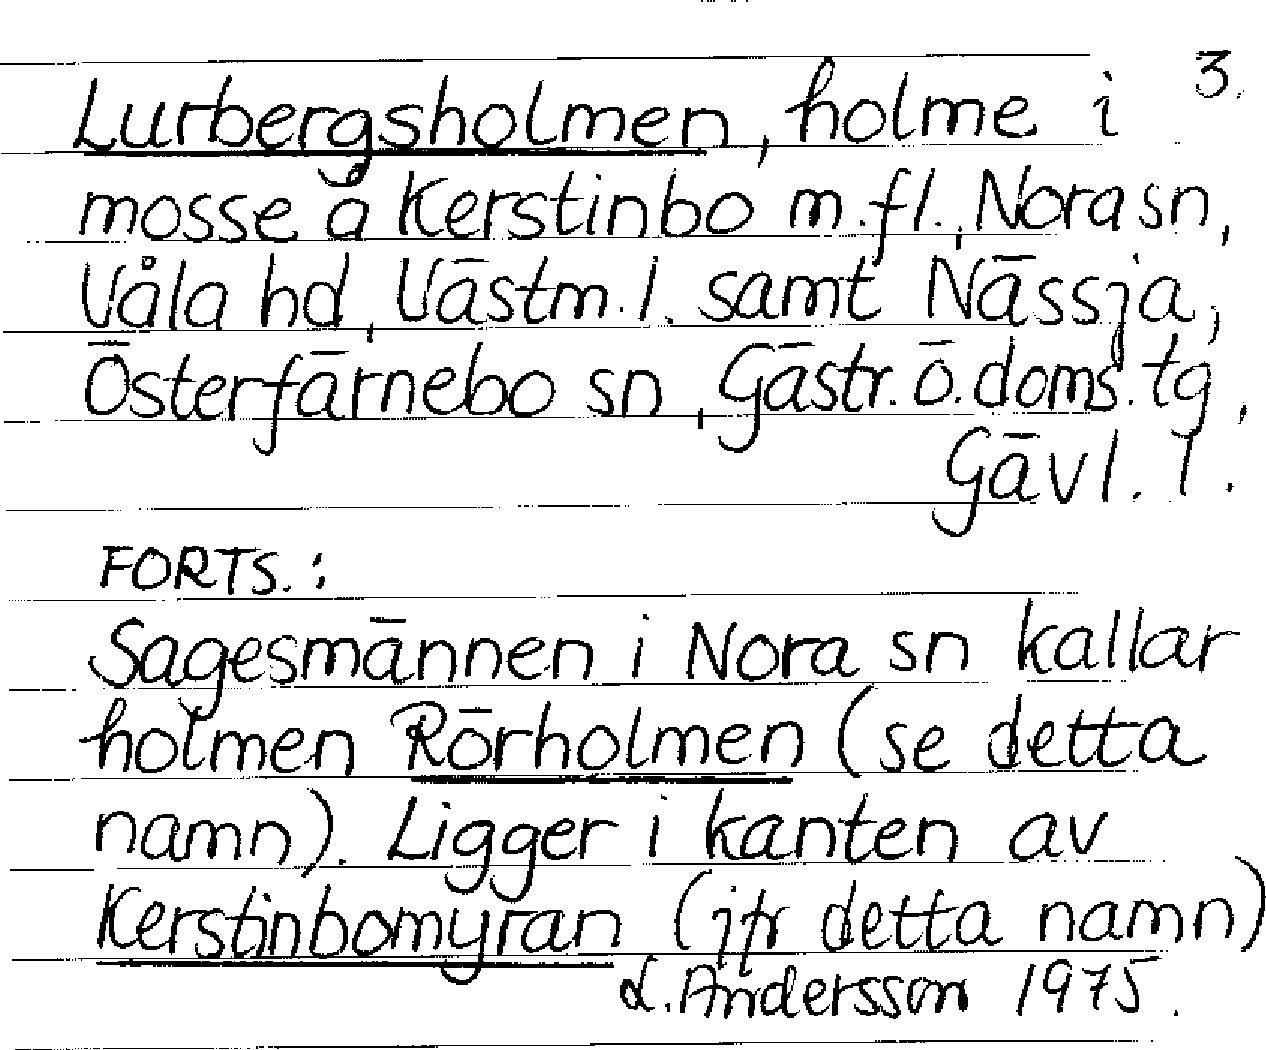 3.
Lurbergsholmen, holme i
mosse å Kerstinbo m.fl., Nora sn,
Våla hd, Västm. l. samt Nässja,
Österfärnebo sn, Gästr. ö. doms. tg,
Gävl. l.
FORTS.:
Sagesmännen i Nora sn kallar
holmen Rörholmen (se detta
namn). Ligger i kanten av
Kerstinbomyran (jfr detta namn)
L. Andersson 1975.